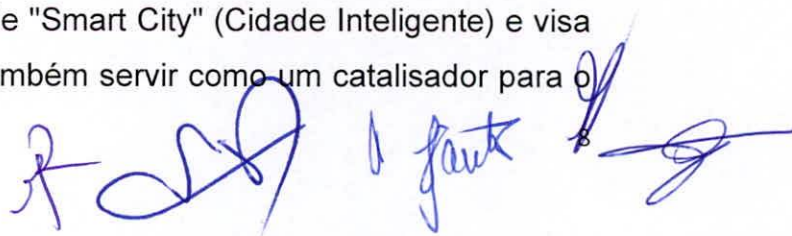 e "Smart City" (Cidade Inteligente) e visa
mbém servir como um catalisador para o
8